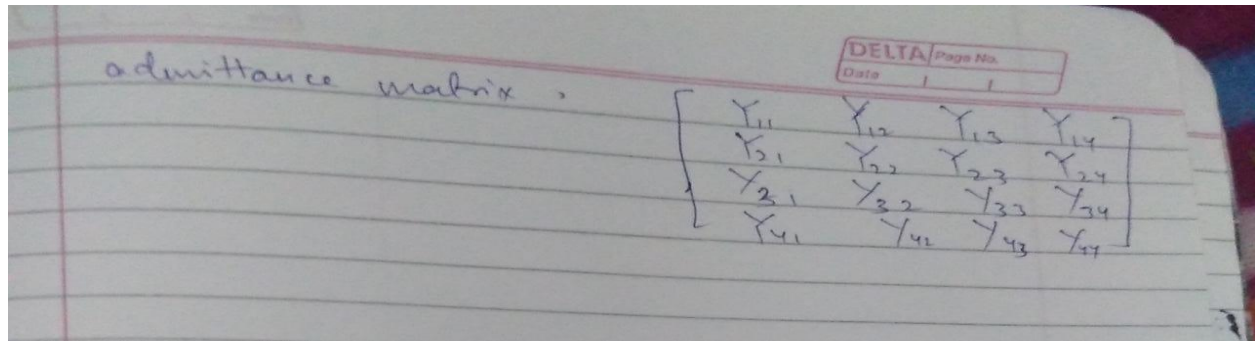 DELTA Page No.
Date
admittance matrix,
Y11 Y12 Y13 Y14
Y21 Y22 Y23 Y24
Y31 Y32 Y33 Y34
Y41 Y42 Y43 Y44